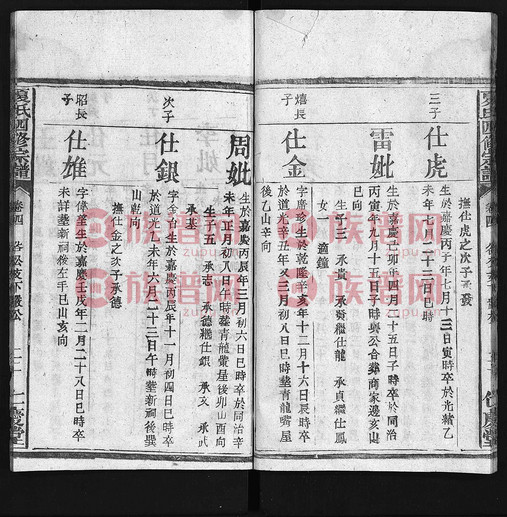 三子
仕虎
撫仕虎之次子承發
生於嘉慶丙子年七月十三日寅時卒於光緒乙
未年七月二十三日巳時
雷妣
生於嘉慶己卯年四月二十五日子時卒於同治
丙寅年九月十五日子時與公合葬商家邊亥山
巳向
生子三 承貴 承發繼仕龍 承貞繼仕鳳
女一 適鍾
熺長子
仕金
字廣珍生於乾隆辛亥年十二月十六日辰時卒
於道光辛丑年又三月初八日巳時葬青龍嘴屋
後乙山辛向
周妣
生於嘉慶丙辰年三月初六日巳時卒於同治辛
未年正月初八日午時葬青龍嘴屋後卯山酉向
生子五 承志 承德繼仕銀 承文 承武
承基
次子
仕銀
字金台生於嘉慶丙辰年十一月初四日巳時卒
於道光己未年六月二十三日午時葬新祠後巽
山乾向
撫仕金之次子承德
昭長子
仕雄
字偉堂生於嘉慶壬戌年二月二十八日巳時卒
未詳葬新祠後左手巳山亥向
夏氏四修宗譜
卷四
族譜网
zupu.cn